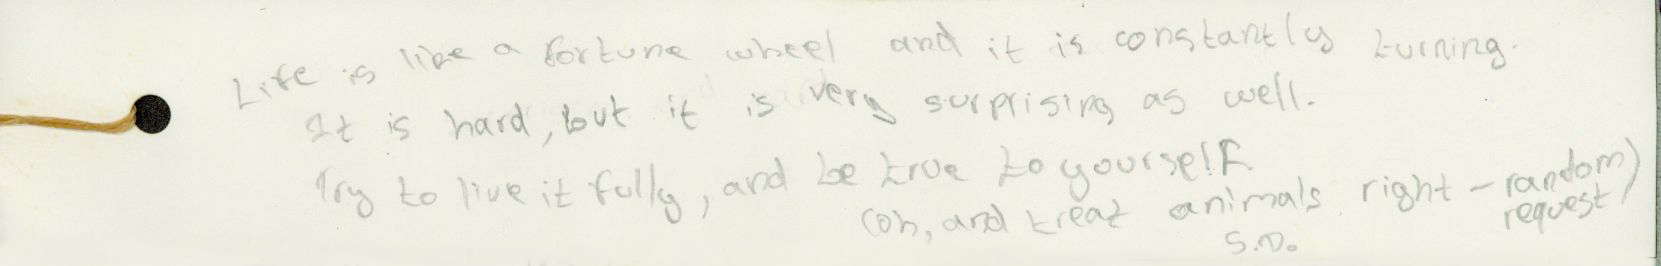 Life is like a fortune wheel and it is constantly turning.
It is hard, but it is very surprising as well.
Try to live it fully, and be true to yourself
(oh, and treat animals right - random
request)
S.D.